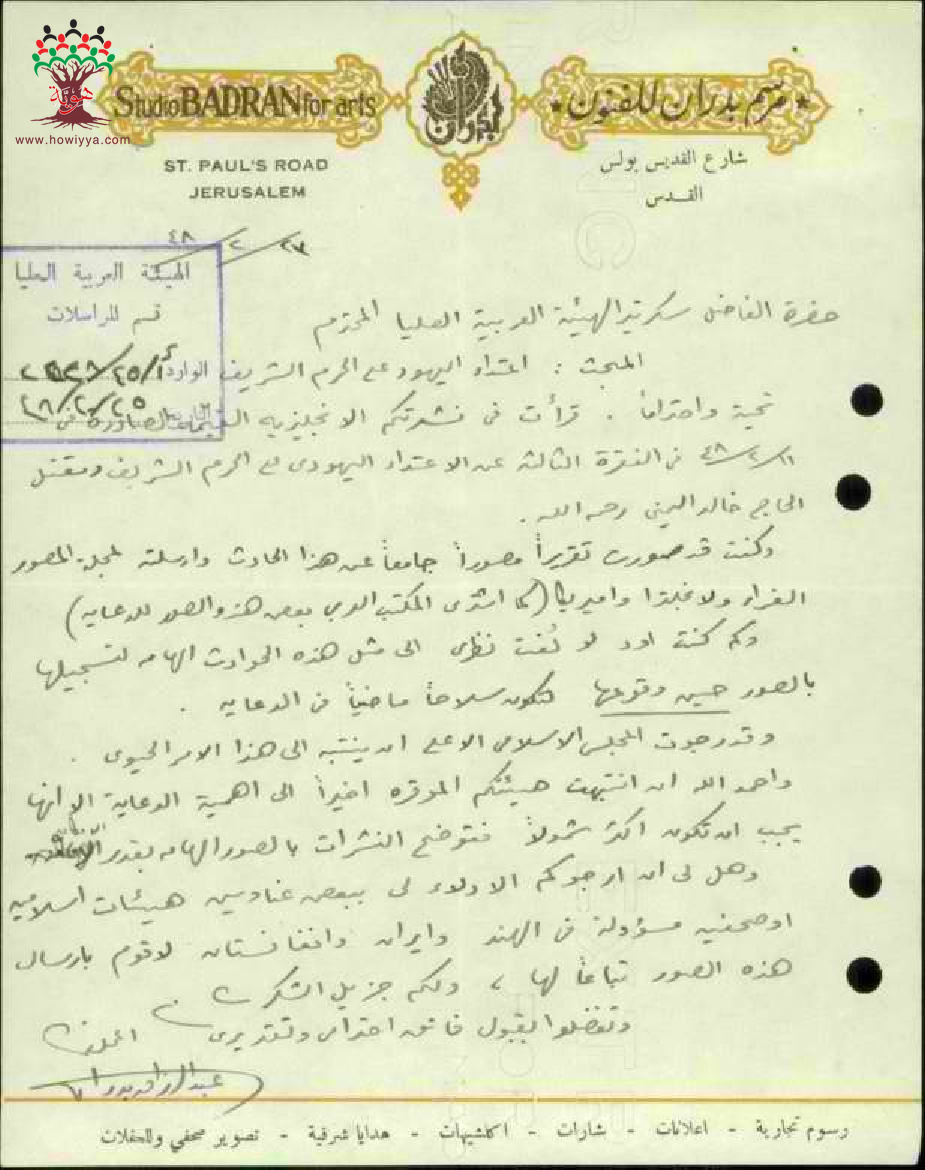 www.howiyya.com
Studio BADRAN for arts
بدران
مرسم بدران للفنون
ST. PAUL'S ROAD
JERUSALEM
شارع القديس بولس
القدس
٢٣/٢/٤٨
الهيئة العربية العليا
قسم المراسلات
الوارد
التاريخ ٢٥/٢/
حضرة الفاضل سكرتير الهيئة العربية العليا المحترم
المبحث : اعتداء اليهود على الحرم الشريف
تحية واحتراماً . قرأت في نشرتكم الانجليزيه القيمة الصادرة في
١١/٢/٤٨ في الفقرة الثالثة عن الاعتداء اليهودي على الحرم الشريف ومقتل
الحاج خالد اليمني رحمه الله .
وكنت قد صورت تقريراً مصوراً جامعاً عن هذا الحادث وارسلته لمجلة المصور
الغراء ولانجلترا واميركا (كما اشترى المكتب العربي بعض هذه الصور للدعايه)
وكم كنت اود لو لُفت نظري الى مثل هذه الحوادث الهامه لتسجيلها
بالصور حين وقوعها لتكون سلاحاً ماضياً في الدعايه .
وقد رجوت المجلس الاسلامي الاعلى ان ينتبه الى هذا الامر الحيوي .
واحمد الله ان انتبهت هيئتكم الموقره اخيراً الى اهمية الدعاية الا انها
يجب ان تكون اكثر شمولاً فتوضح النشرات بالصور الهامه بقدر
وهل لي ان ارجوكم الادلاء لي ببعض عناوين هيئات اسلاميه
او صحفيه مسؤولة في الهند وايران وافغانستان لاقوم بارسال
هذه الصور تباعاً لها ، ولكم جزيل الشكر
وتفضلوا بقبول فائق احترامي وتقديري المخلص
عبد الرزاق بدران
رسوم تجارية - اعلانات - شارات - اكلشيهات - هدايا شرقية - تصوير صحفي وللحفلات